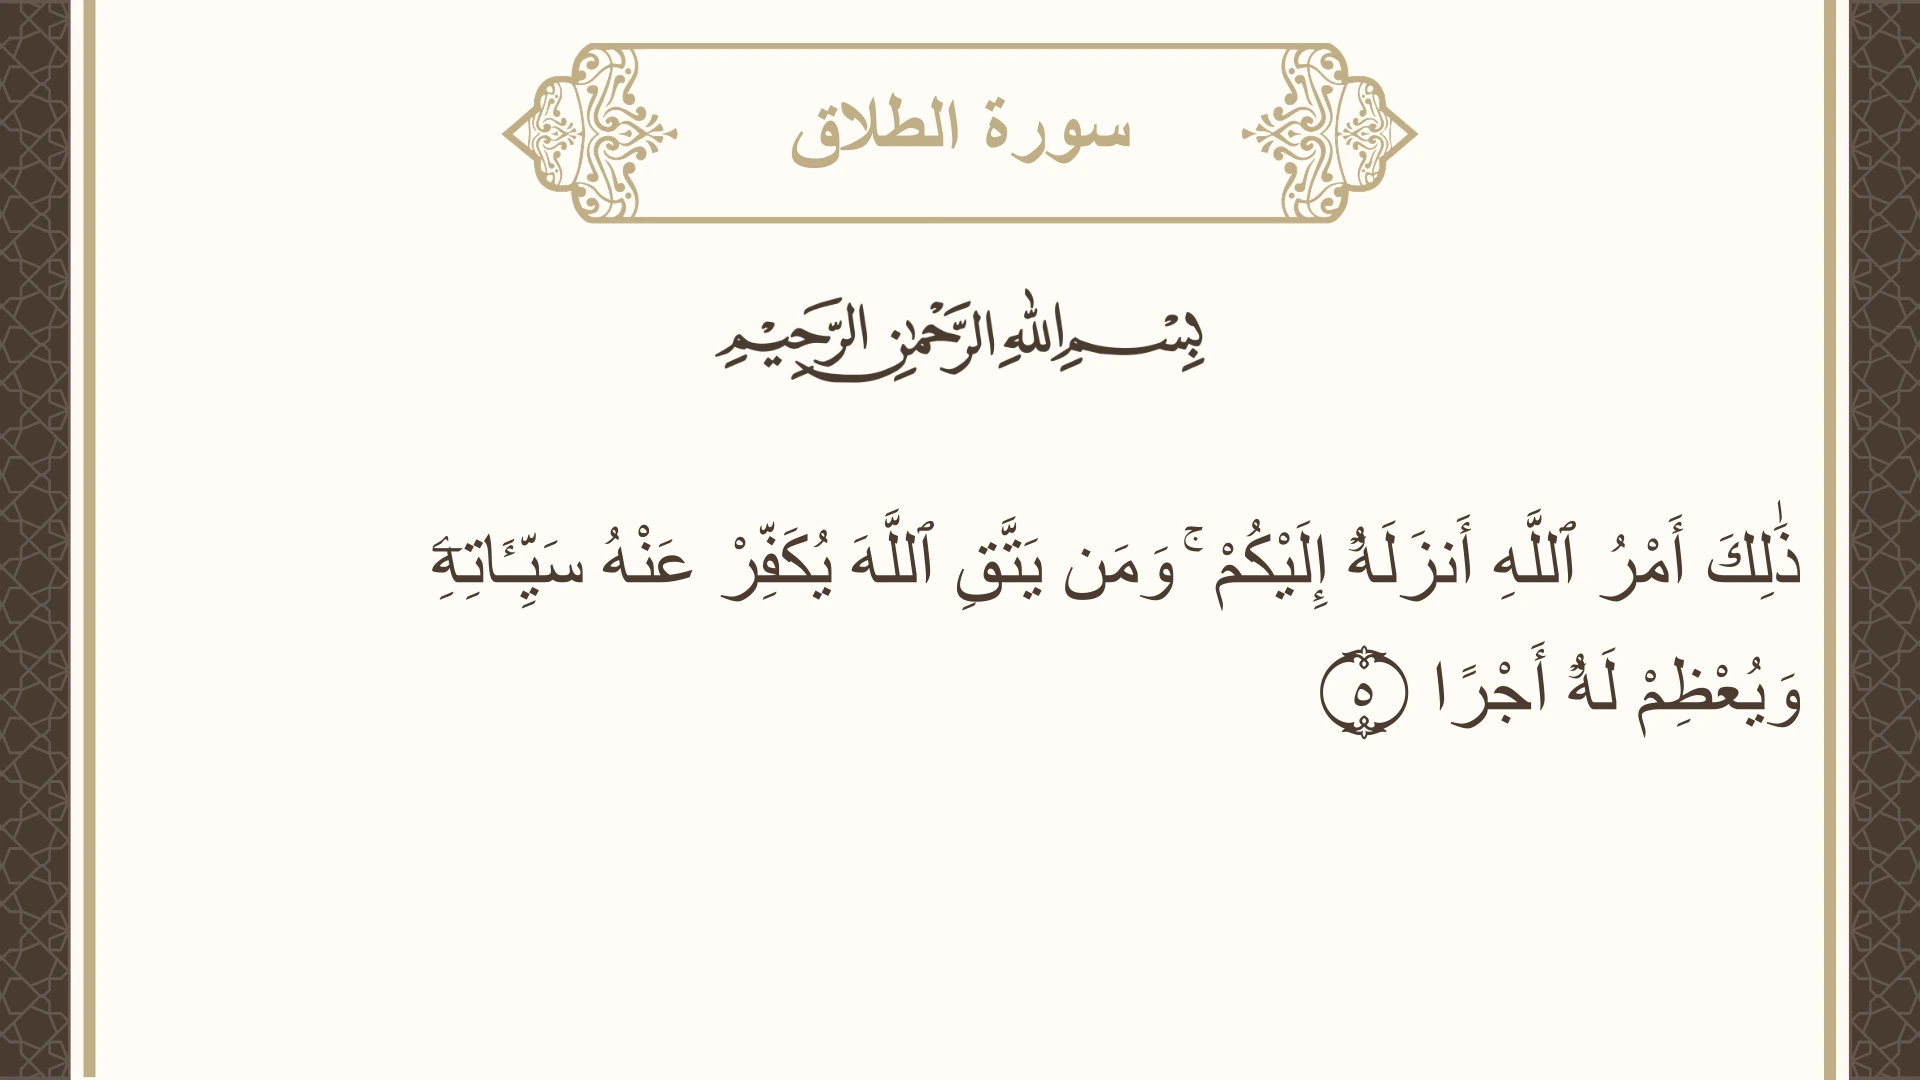 سورة الطلاق
بِسْمِ اللهِ الرَّحْمٰنِ الرَّحِيْمِ
ذَٰلِكَ أَمْرُ ٱللَّهِ أَنزَلَهُۥٓ إِلَيْكُمْ ۚ وَمَن يَتَّقِ ٱللَّهَ يُكَفِّرْ عَنْهُ سَيِّـَٔاتِهِۦ
وَيُعْظِمْ لَهُۥٓ أَجْرًا ٥